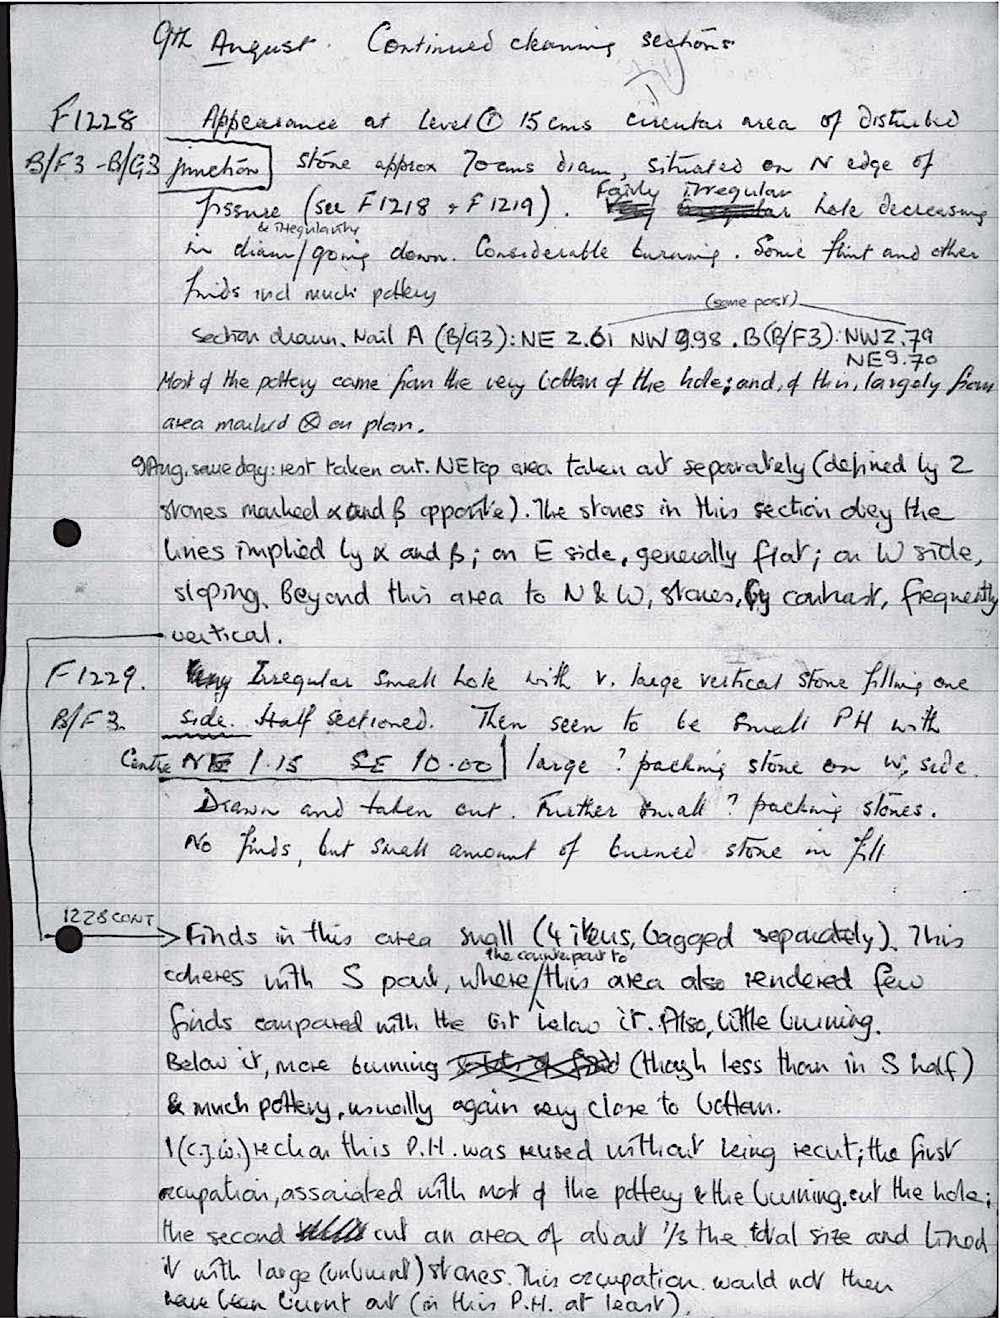 9th August. Continued cleaning sections
F1228 Appearance at Level ① 15 cms circular area of disturbed
B/F3 - B/G3 junction stone approx 70cms diam, situated on N edge of
fissure (see F1218 & F1219). Fairly irregular hole decreasing
& irregularity
in diam/going down. Considerable burning. Some flint and other
finds incl much pottery
(same post)
Section drawn. Nail A (B/G3): NE 2.61 NW 9.98. B(B/F3): NW2.79
NE9.70
Most of the pottery came from the very bottom of the hole; and, of this, largely from
area marked ⊗ on plan.
9 Aug. same day: rest taken out. NE top area taken out separately (defined by 2
stones marked α and β opposite). The stones in this section obey the
lines implied by α and β; on E side, generally flat; on W side,
sloping. Beyond this area to N & W, stones, by contrast, frequently
vertical.
F1229. Irregular small hole with v. large vertical stone filling one
B/F3 side. Half sectioned. Then seen to be small PH with
Centre NE 1.15 SE 10.00 large ? packing stone on W. side.
Drawn and taken out. Further small ? packing stones.
No finds, but small amount of burned stone in fill
1228 CONT
Finds in this area small (4 items, bagged separately). This
the counterpart to
coheres with S part, where/this area also rendered few
finds compared with the bit below it. Also, little burning.
Below it, more burning (though less than in S half)
& much pottery, usually again very close to bottom.
I (C.J.W.) reckon this P.H. was reused without being recut; the first
occupation, associated with most of the pottery & the burning, cut the hole;
the second cut an area of about 1/3 the total size and lined
it with large (unburnt) stones. This occupation would not then
have been burnt out (in this P.H. at least).